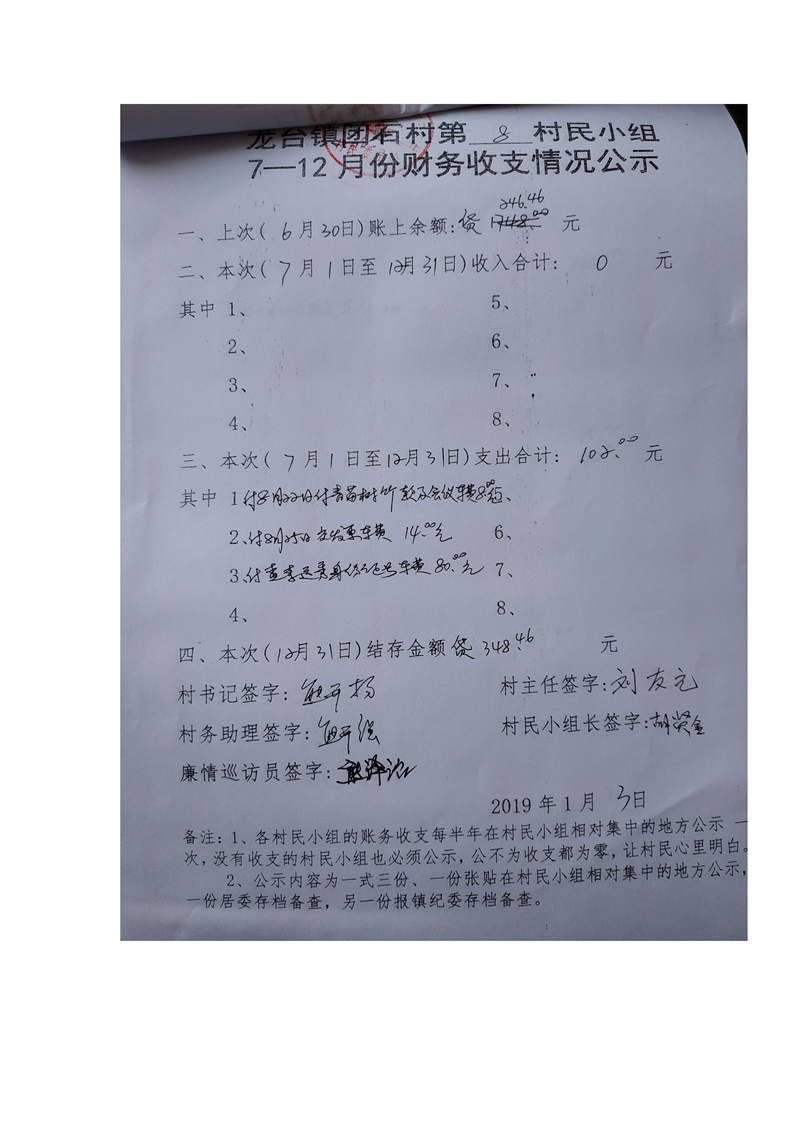 龙台镇团石村第 8 村民小组
7—12月份财务收支情况公示
246.46
一、上次(6月30日)账上余额:贷 1748.00 元
二、本次(7月1日至12月31日)收入合计: 0 元
其中 1、 5、
2、 6、
3、 7、
4、 8、
三、本次(7月1日至12月31日)支出合计: 102.00 元
其中 1付8月22日付青苗树竹款及会议车费8.00 5、
2、付8月25日交发票车费 14.00元 6、
3、付查李运秀身份证号车费 80.00元 7、
4、 8、
四、本次(12月31日)结存金额贷 348.46 元
村书记签字: 村主任签字:刘友元
村务助理签字: 村民小组长签字:胡贤金
廉情巡访员签字:
2019年1月 3日
备注:1、各村民小组的账务收支每半年在村民小组相对集中的地方公示 一
次,没有收支的村民小组也必须公示,公不为收支都为零,让村民心里明白。
2、公示内容为一式三份、一份张贴在村民小组相对集中的地方公示,
一份居委存档备查,另一份报镇纪委存档备查。